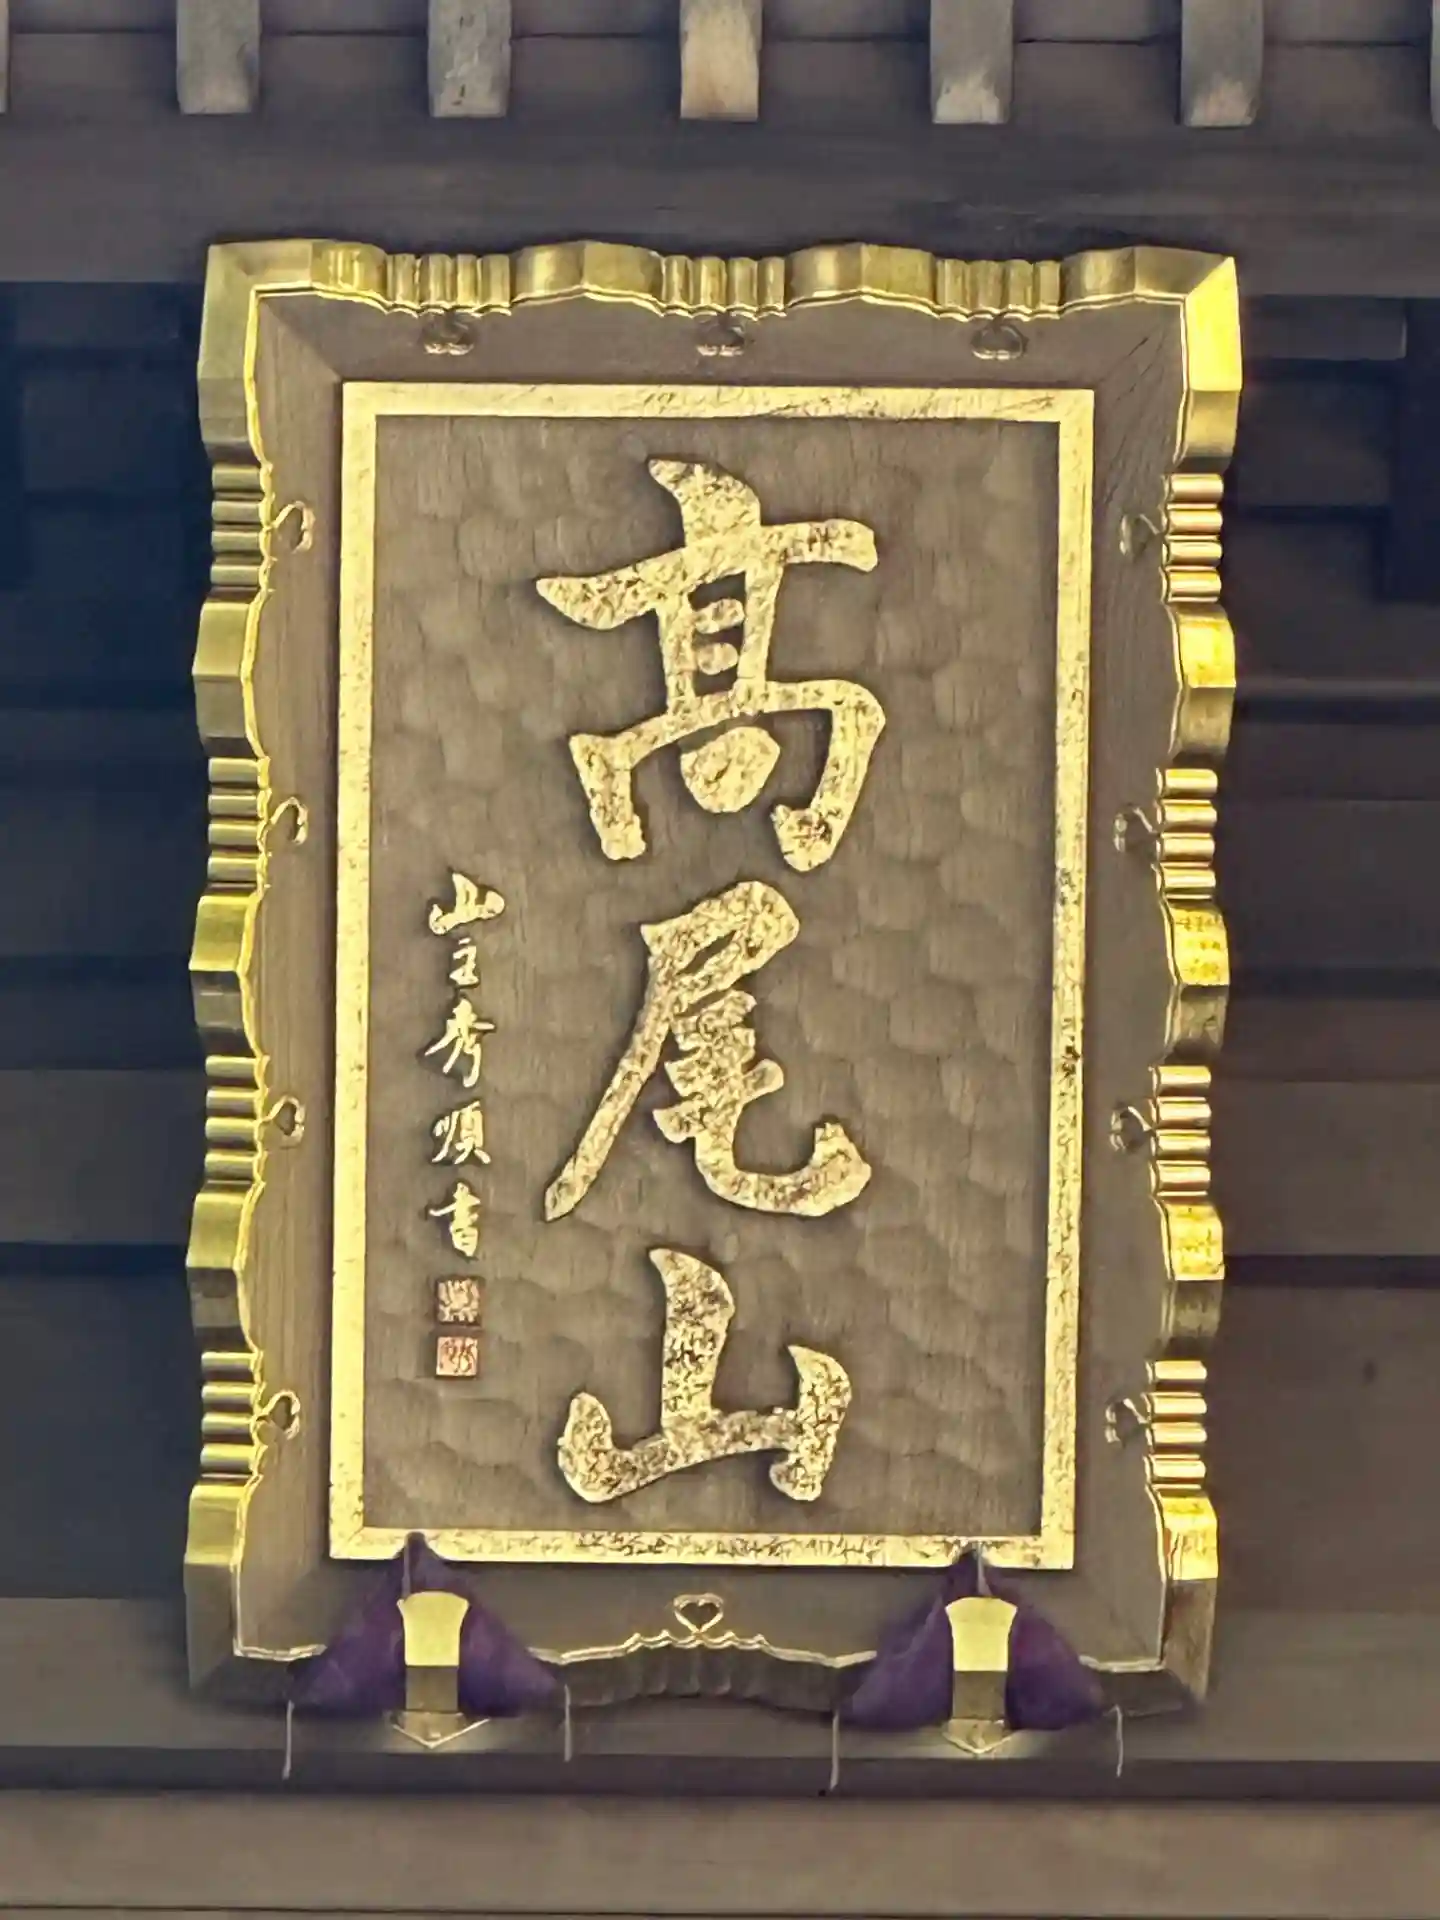 髙尾山
山主秀順書